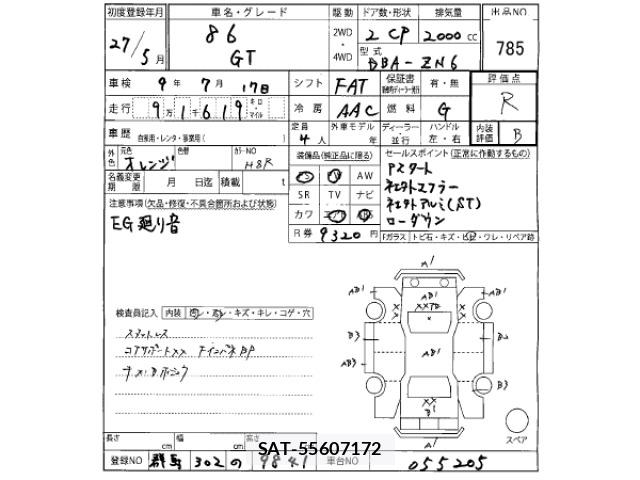 初度登録年月 車名・グレード 駆動 ドア数・形状 排気量 出品NO
27/5月 86 GT 2WD・4WD 2 CP 2000cc 785
型式 DBA-ZN6
車検 9年 7月 17日 シフト FAT 保証書 有・無 評価点 R
走行 9万1千619 キロ マイル 冷房 AAC 燃料 G
車歴 自家用・レンタ・事業用( ) 定員 4人 外車モデル 年 ディーラー・並行 ハンドル 左・右 内装評価 B
外色 元色 オレンジ 色替 カラーNO H8R
装備品(純正品に限る) セールスポイント(正常に作動するもの)
名義変更期限 月 日迄 積載 t
PS PW AW
SR TV ナビ
カワ エアB ABS
R券 9320円
Pスタート
社外マフラー
社外アルミ(ST)
ローダウン
注意事項(欠品・修復・不具合箇所および状態)
EG廻り音
Fガラス トビ石・キズ・ヒビ・ワレ・リペア跡
検査員記入 内装 ・キズ・キレ・コゲ・穴
スペア
長さ cm 幅 cm 高さ cm
SAT-55607172
登録NO 群馬 302 の 9841 車台NO 055205
A1
AB1 AB1 AB1
XXTB
B3 AB1 B2
AB3 B3
XX
B1
A1